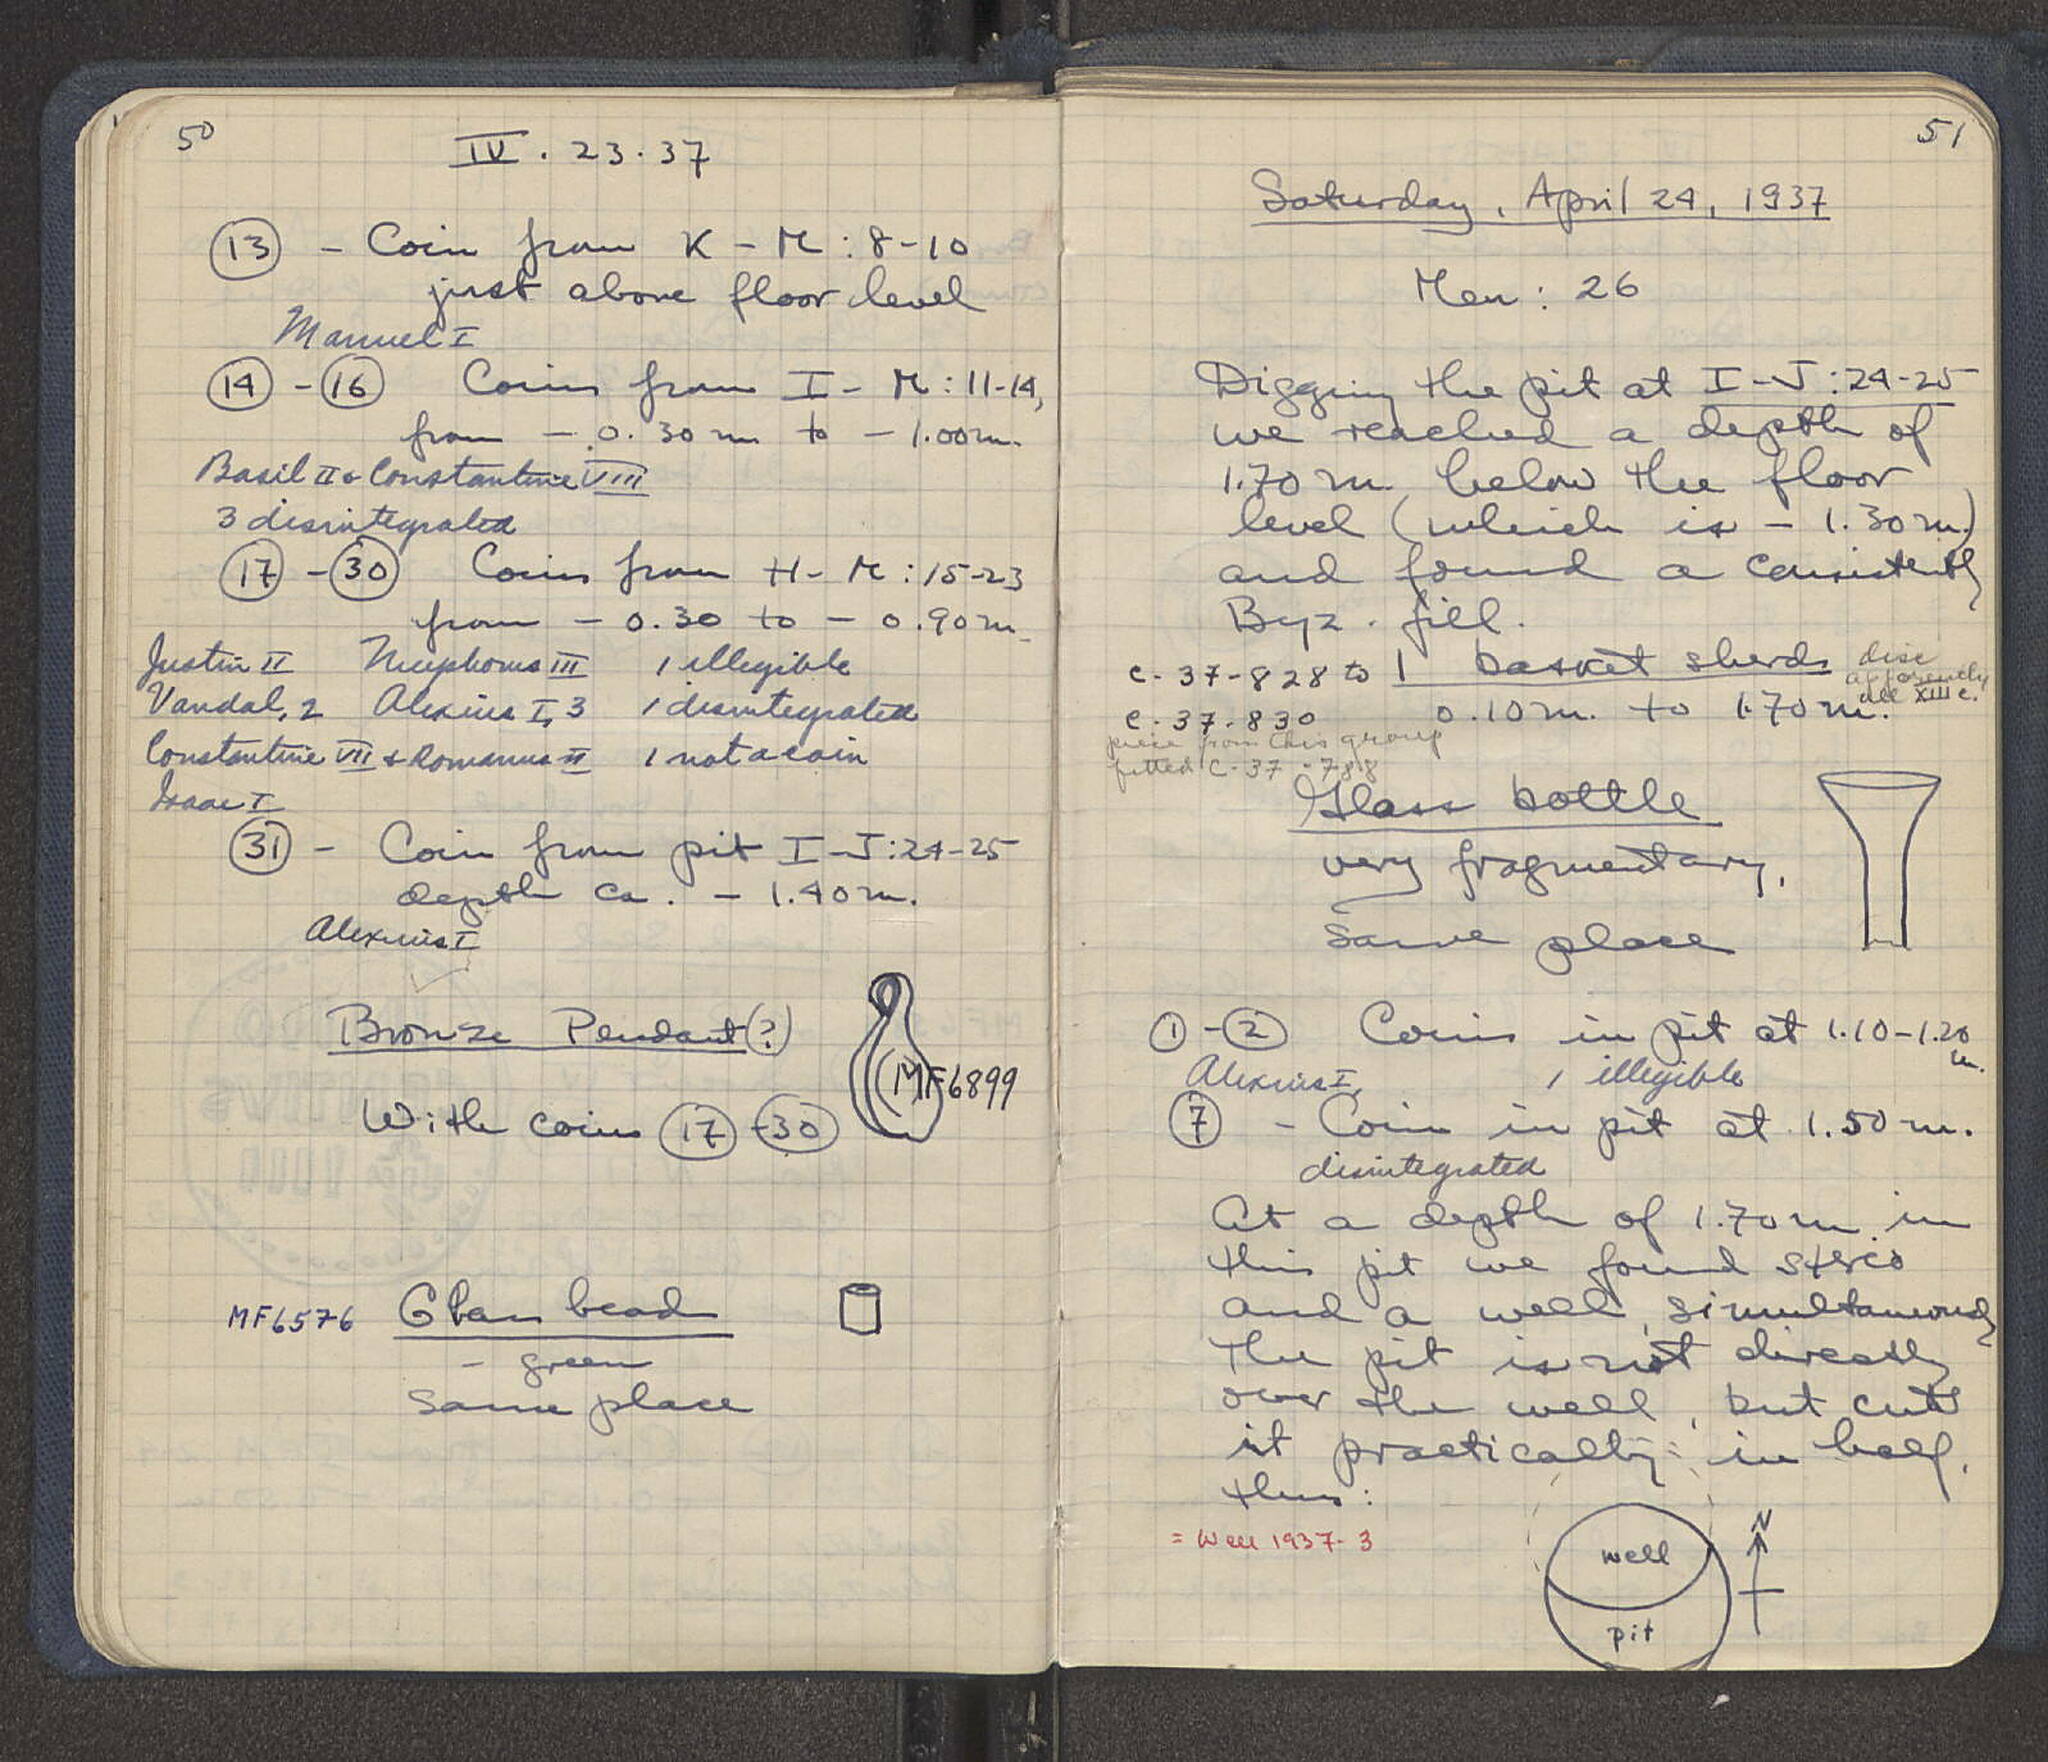 50
IV . 23 . 37
(13) - Coin from K - M : 8-10
just above floor level
Manuel I
(14) - (16) Coins from I - M : 11-14,
from - 0.30 m to - 1.00 m.
Basil II & Constantine VIII
3 disintegrated
(17) - (30) Coins from H - M : 15-23
from - 0.30 to - 0.90 m.
Justin II Nicephorus III 1 illegible
Vandal, 2 Alexius I, 3 1 disintegrated
Constantine VII & Romanus II 1 not a coin
Isaac I
(31) - Coin from pit I-J : 24-25
depth ca. - 1.40 m.
Alexius I
Bronze Pendant (?)
MF6899
With coins (17) - (30)
MF6576 Glass bead
- green
same place
51
Saturday, April 24, 1937
Men : 26
Digging the pit at I-J : 24-25
we reached a depth of
1.70 m. below the floor
level (which is - 1.30 m.)
and found a consistently
Byz. fill.
C-37-828 to 1 basket sherds disc
apparently
all XIII c.
C-37-830 0.10 m. to 1.70 m.
piece from this group
fitted C-37-788
Glass bottle
very fragmentary,
same place
(1) - (2) Coins in pit at 1.10-1.20
m.
Alexius I, 1 illegible
(7) - Coin in pit at 1.50 m.
disintegrated
At a depth of 1.70 m in
this pit we found stereo
and a well, simultaneously
The pit is not directly
over the well, but cuts
it practically in half,
thus :
= Well 1937-3
N
well
pit